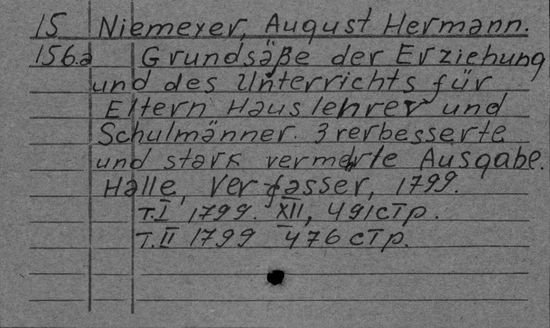 15 Niemeyer, August Hermann.
156.a Grundsäße der Erziehung
und des Unterrichts für
Eltern Hauslehrer und
Schulmänner. 3 rerbesserte
und stark vermehrle Ausgabe.
Halle, Verfasser, 1799.
T.I 1799. XII, 491 стр.
T.II 1799 476 стр.